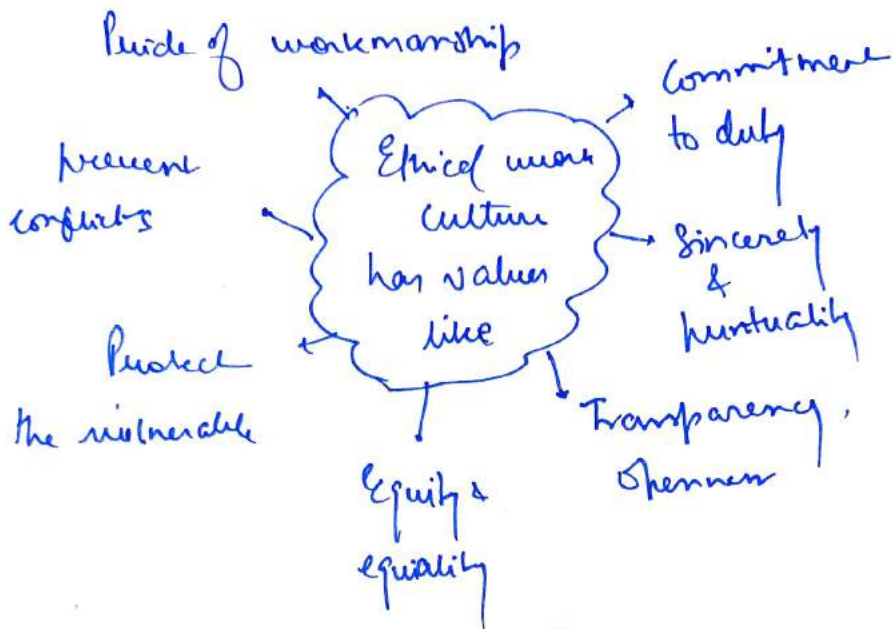 Pride of workmanship
Commitment
to duty
prevent
conflicts
Ethical work
culture
has values
like
Sincerety
&
puntuality
Protect
the vulnerable
Transparency,
openness
Equity &
equiality